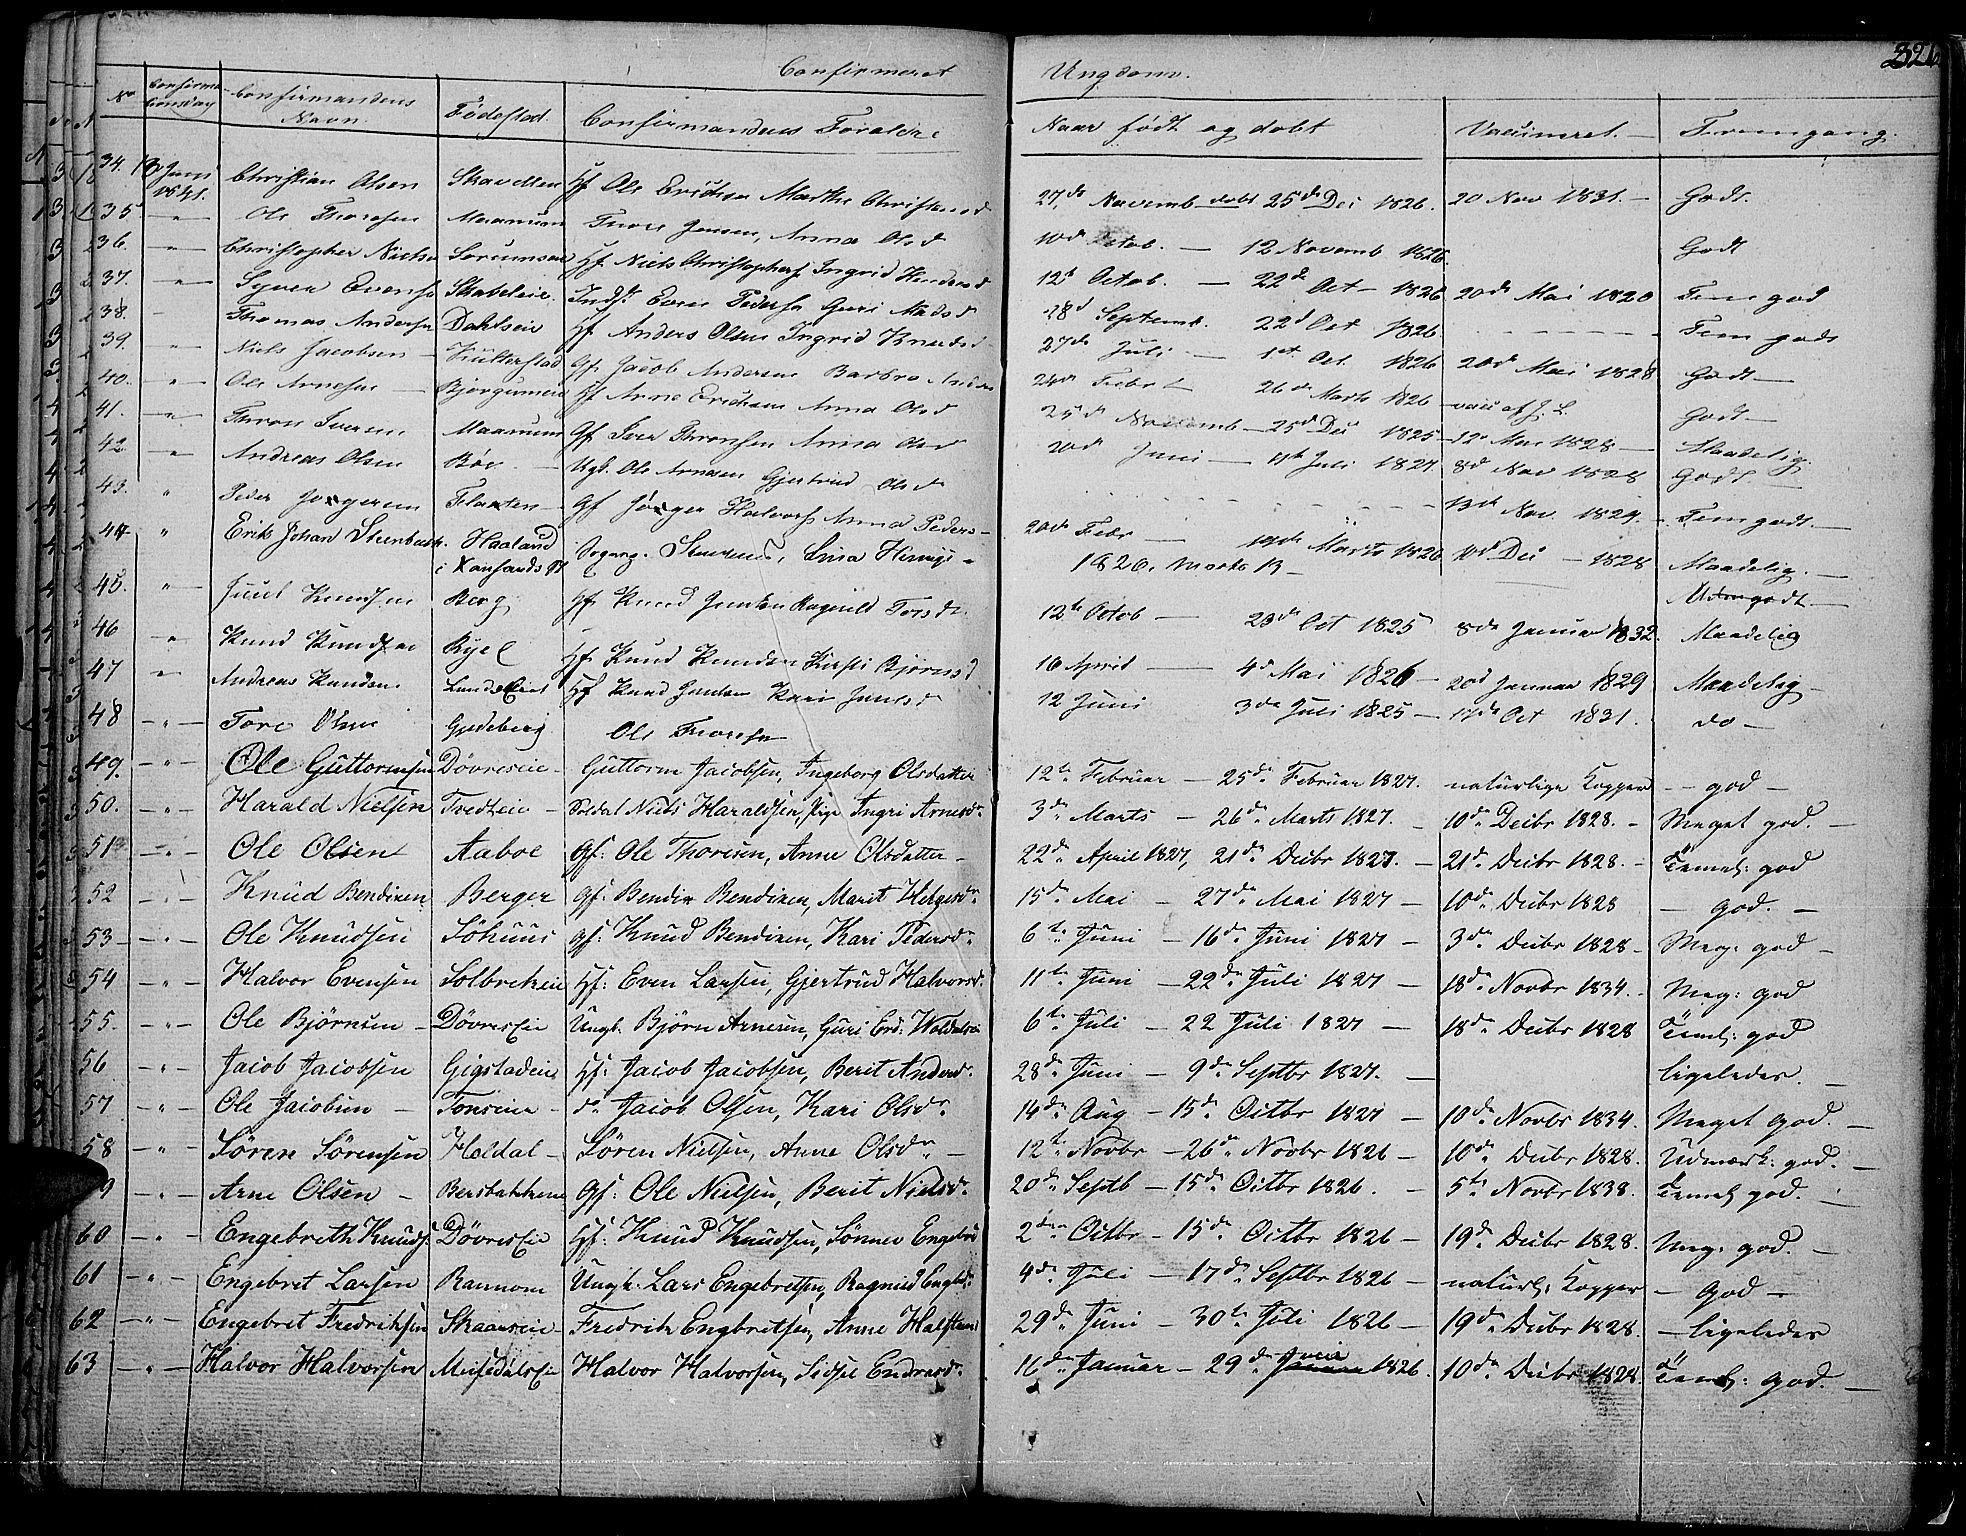 321
Confirmeret Ungdom.
No Confirma- tionsdag Confirmandens Navn. Fødestad. Confirmandens Forældre Naar født og døbt Vaccineret. Fremgang.
34. 13 Juni 1841. Christian Olsen Hf Ole Erichsen Marthe Christensd 27de Novemb døbt 25de Dec 1826. 20 Nov 1831. Godt.
35 " Ole Thoresen Maanum Thore Jensen, Anna Olsd 10d Octob. 12 Novemb 1826. Godt
36. " Christopher Nielsen Hf. Niels Christophers Ingrid 12t Octob. 22de Oct 1826 20de Mai Temgod
37. " Syver Evens Even Peders Guri Madsd 28d Septemb. 22d Oct 1826. Temgodt
38. Thomas Anders Dahlseie Hf. Anders Olsen Ingrid Knudsd 27de Juli 1st Oct. 1826 20de Mai 1828 Godt
39. " Niels Jacobsen Gf. Jacob Andersen Barbro 24de Febr 26de Marts 1826 vacc af Godt
40. " Ole Arnesen Hf Arne Erichsen Anna Olsd 25de Novemb 25d Dec 1825 12 Mai 1828 Maadelig.
41. " Thron Iversen Maanum Gf. Iver Thronsen Anna Olsd 20d Juni Juli 1827. 8d Nov 1828 Godt
42. " Andreas Olsen Bøe Ugk. Ole Arnesen Gjertrud Olsd 13de Nov. Temgodt.
43. " Peder Flaaten Gf Halvors Anna Peders 20de Febr Marts 1826 10d Dec 1828 Maadelig.
44. " Erik Johan Haaland i 1826. Marts 13 Udmgodt
45. " Juul Knudsen Berg Hf. Knud Ragnild Torsd 12te Octob 23de Oct 1825 8de Januar 1832. Maadelig
46 " Knud Knudsen Ryel Hf. Knud Knudsen Kirsti Bjørnsd 16 April 4de Mai 1826 20d Januar 1829 Maadelig
47 " Andreas Knudsen Hf Knud Kari 12 Juni 3de Juli 1825 17de Oct 1831. do
48 " Tore Olsen Gudeberg Ole Thoresen
49. " Ole Guttormsen Dövreseie Guttorm Jacobsen, Ingeborg Olsdatter 12te Februar 25de Februar 1827. naturlige Kopper god
50. " Harald Nielsen Tvedteie Soldat Niels Haraldsen, Pige Ingri Arnesdr 3de Marts 26de Marts 1827. 10de Decbr 1828. Meget god.
51 " Ole Olsen Aaboe Gf: Ole Thoresen, Anne Olsdatter 22de April 1827, 21de Decbr 1827. 21de Decbr 1828. Teml: god
52 " Knud Bendixen Berger Gf: Bendix Bendixen, Marit Helgesdr 15de Mai 27de Mai 1827 10de Decbr 1828 god.
53 " Ole Knudsen Söhuus Gf: Knud Bendixen, Kari Pedersdr 6te Juni 16de Juni 1827 3de Decbr 1828 Meg: god
54 " Halvor Evensen Solbrekeie Hf: Even Larsen, Gjertrud Halvorsd. 11te Juni 22de Juli 1827 18de Novbr 1834. Meg: god
55. " Ole Björnsen Dövreseie Ungk. Björn Arnesen, Guri 6te Juli 22 Juli 1827 18de Decbr 1828 Teml: god
56 " Jacob Jacobsen Gigstadeie Hf: Jacob Jacobsen, Berit Andersd. 28de Juni 9de Septbr 1827. ligeledes.
57 " Ole Jacobsen Tonseie do Jacob Olsen, Kari Olsdr. 14de Aug 15de Octbr 1827 10de Novbr 1834. Meget god.
58 " Sören Sörensen Holdal Sören Nielsen, Anne Olsdr. 12te Novbr 26de Novbr 1826 10de Decbr 1828. Udmærk: god.
9 " Arne Olsen Bersbakkene Gf: Ole Nielsen, Berit Nielsdr. 20de Septb 15de Octbr 1826. 5te Novbr 1838. Teml: god.
60 " Engebreth Knuds: Dövreseie Hf: Knud Knudsen, Sönnev Engebrs 2den Octbr 15de Octbr 1826 19de Decbr 1828. Meg: god.
61 " Engebret Larsen Rannom Ungk: Lars Engebretsen, Ragnild Engebdr 4de Juli 17de Septbr 1826 naturl: Kopper God
62 " Engebret Fredriksen Skaarseie Fredrik Engbritsen, Anne Halstensd 29de Juni 30te Juli 1826 19de Decbr 1828. ligeledes
63 " Halvor Halvorsen Halvor Halvorsen, Sidsel Endresdr. 16de Januar 29de Januar 1826. 10de Decbr 1828. Teml: god.